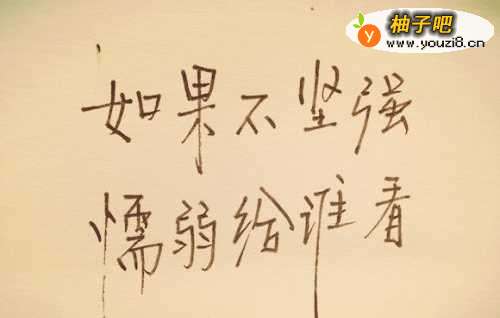 柚子吧
www.youzi8.cn
如果不坚强
懦弱给谁看